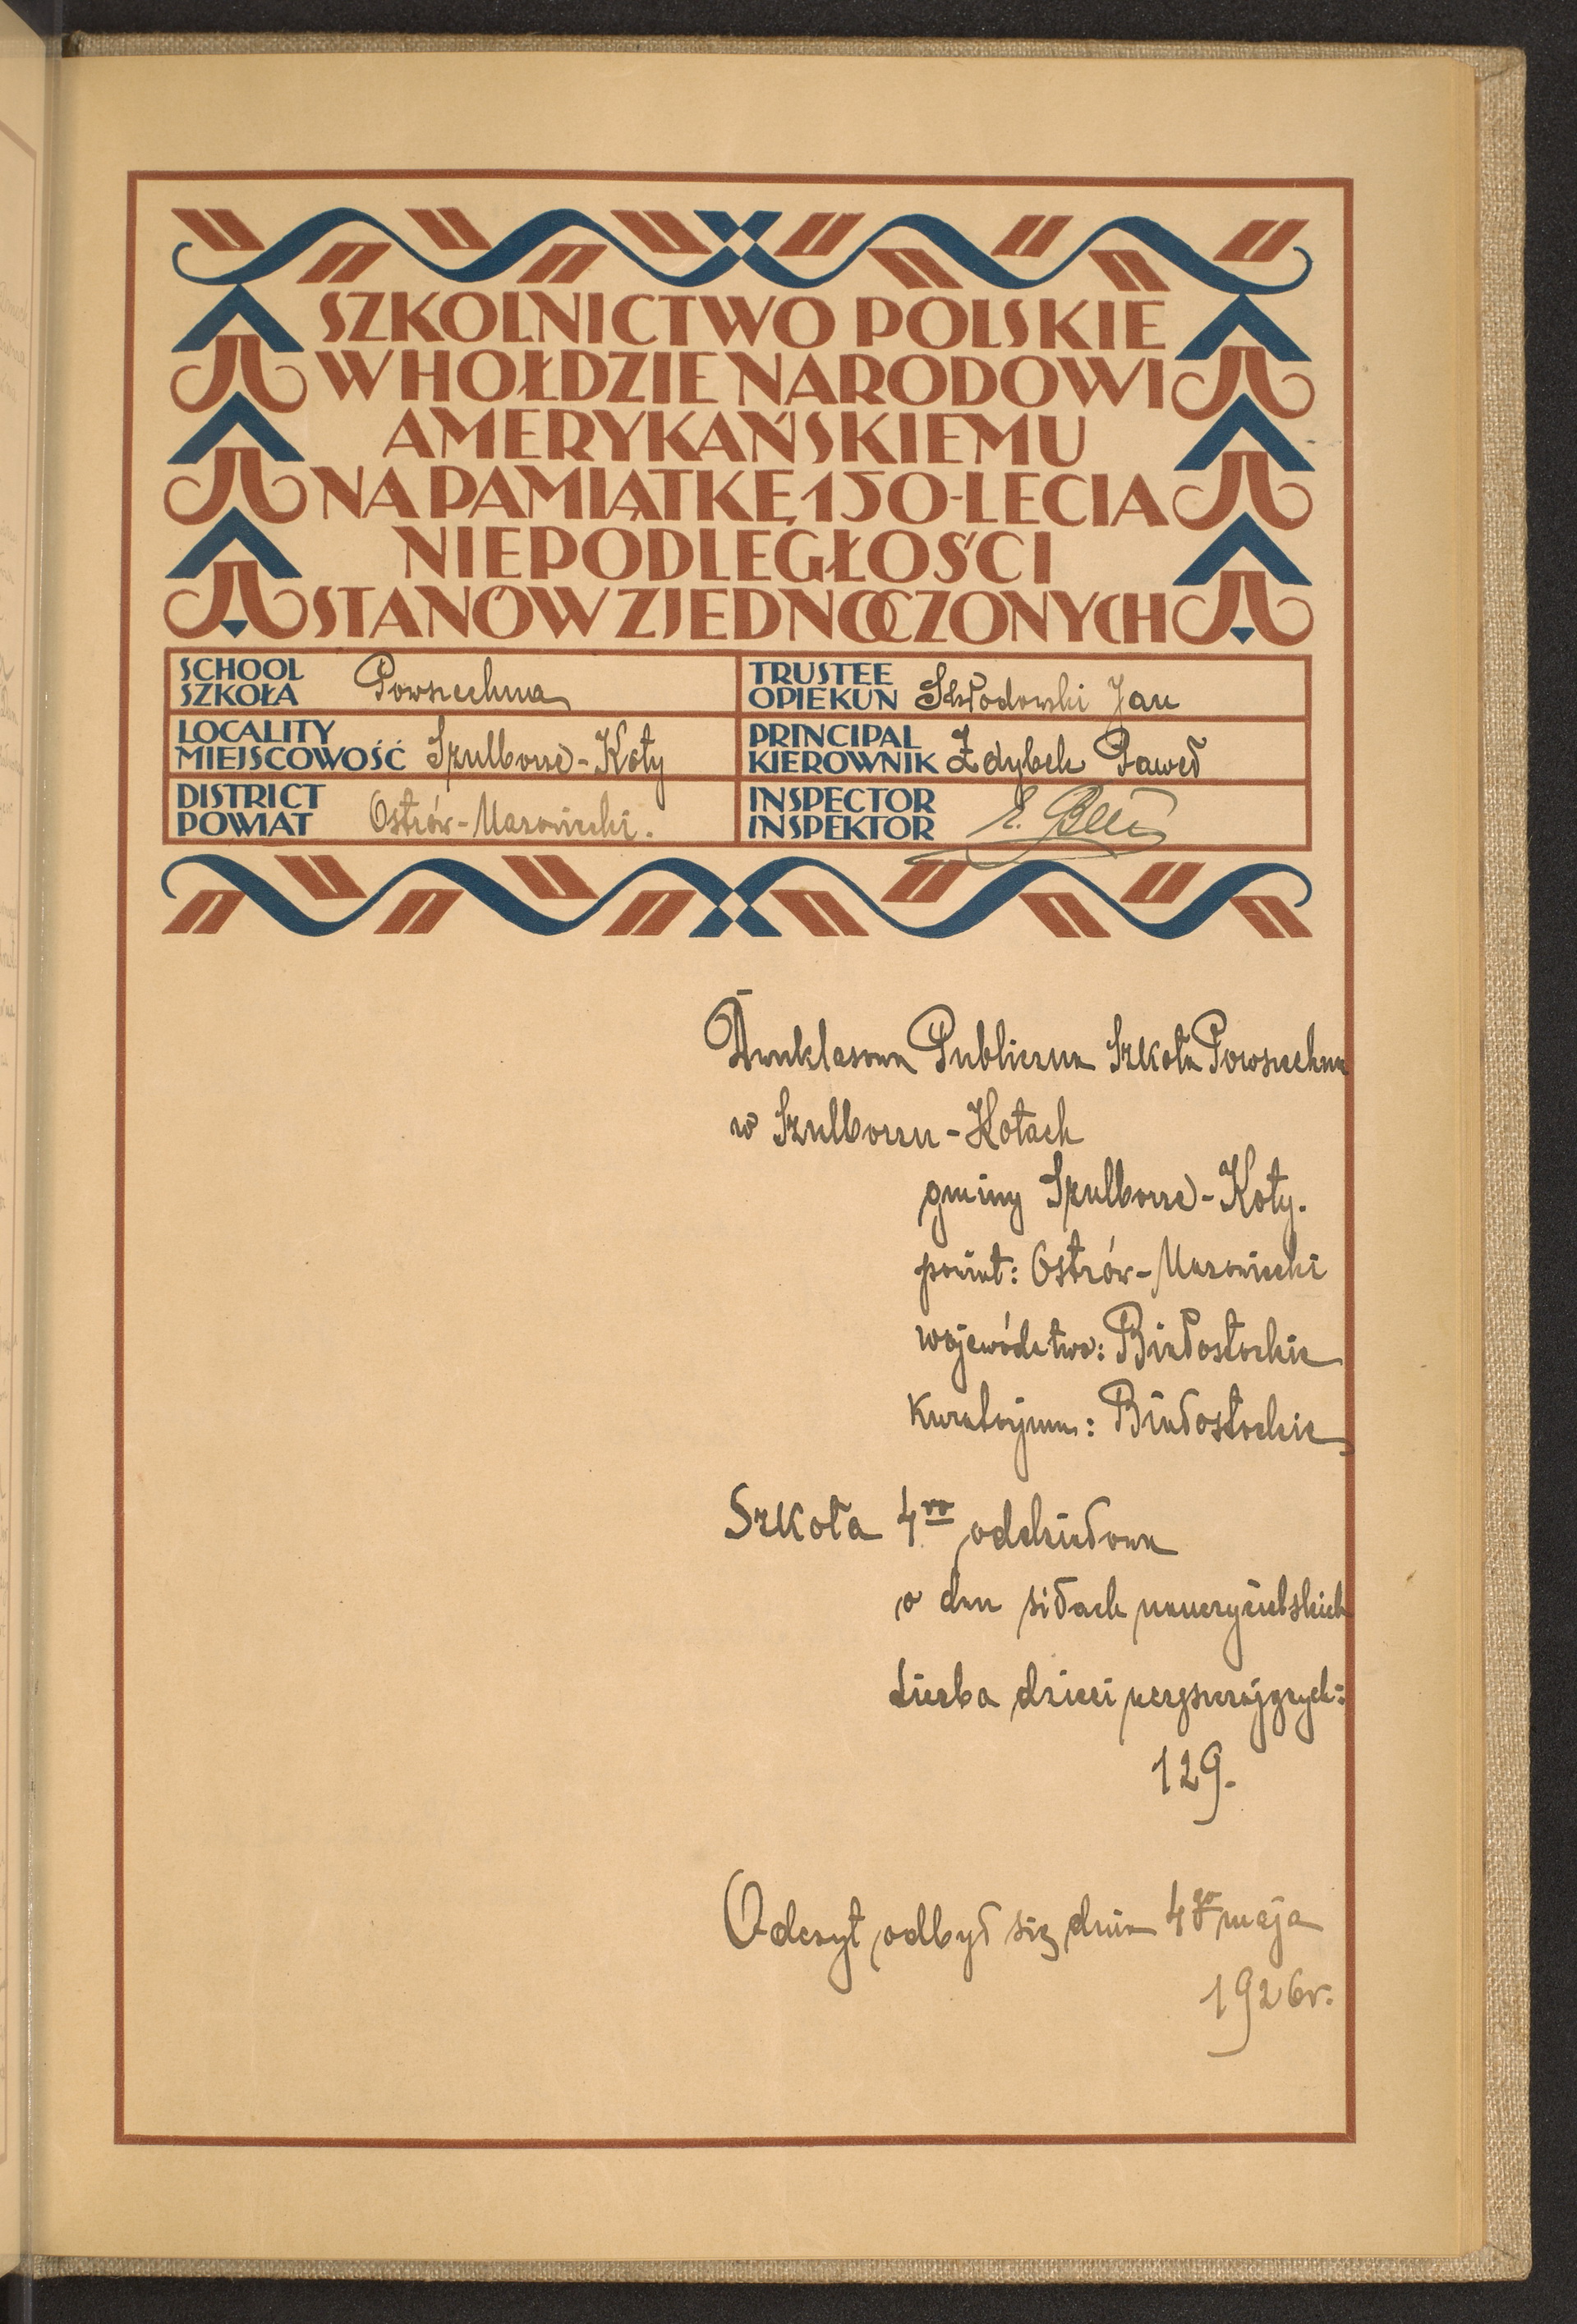 SZKOLNICTWO POLSKIE
W HOŁDZIE NARODOWI
AMERYKAŃSKIEMU
NA PAMIĄTKĘ 150-LECIA
NIEPODLEGŁOŚCI
STANÓW ZJEDNOCZONYCH
SCHOOL
SZKOŁA Powszechna
TRUSTEE
OPIEKUN Skłodowski Jan
LOCALITY
MIEJSCOWOŚĆ Szulborze-Koty
PRINCIPAL
KIEROWNIK Zdybek Paweł
DISTRICT
POWIAT Ostrów-Mazowiecki.
INSPECTOR
INSPEKTOR
Dwuklasowa Publiczna Szkoła Powszechna
w Szulborzu-Kotach
gminy Szulborze-Koty.
powiat: Ostrów-Mazowiecki
województwo: Białostockie
Kuratorjum: Białostockie
Szkoła 4ro oddziałowa
o dwu siłach nauczycielskich
Liczba dzieci uczęszczających:
129.
Odczyt odbył się dnia 4go maja
1926r.